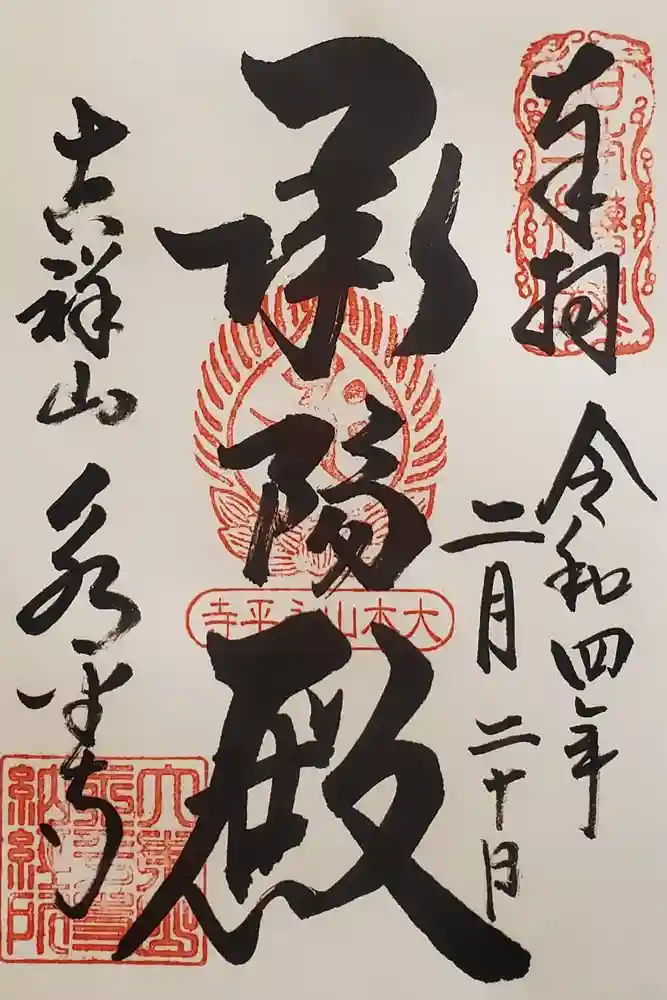 奉拝
令和四年
二月二十日
承陽殿
大本山永平寺
吉祥山永平寺